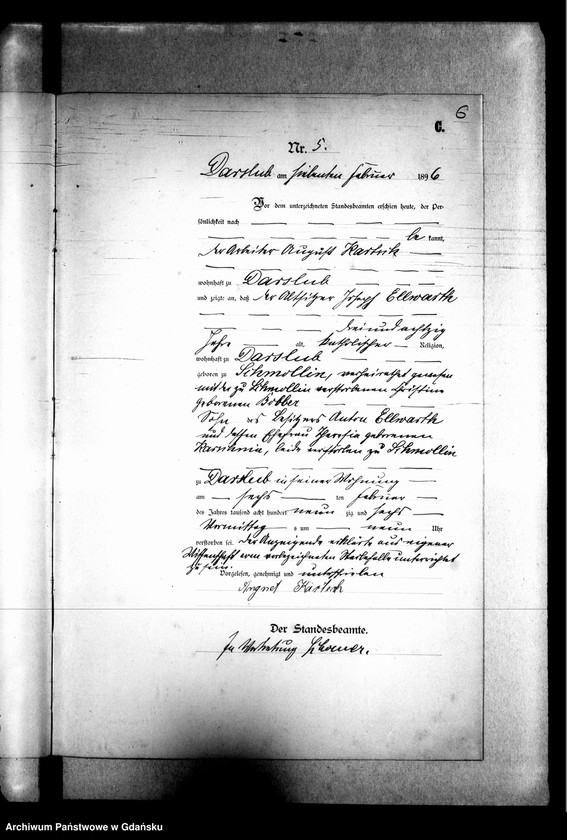 6
C.
Nr. 5.
Darslub am siebenten Februar 1896
Vor dem unterzeichneten Standesbeamten erschien heute, der Per-
sönlichkeit nach
be kannt,
der Arbeiter August
wohnhaft zu Darslub
und zeigte an, daß der Altsitzer Joseph Ellwarth
drei und achtzig
Jahre alt, katholischer Religion,
wohnhaft zu Darslub
geboren zu Schmollin, verheirathet gewesen
mit der zu Schmollin verstorbenen Christine
geborenen Böbber
Sohn des Besitzers Anton Ellwarth
und dessen Ehefrau Theresia geborenen
beide verstorben zu Schmollin
zu Darslub in seiner Wohnung
am sechs ten Februar
des Jahres tausend acht hundert neun zig und sechs
Vormittag s um neun Uhr
verstorben sei. Der Anzeigende erklärte aus eigener
Wissenschaft vom vorbezeichneten Sterbefalle unterrichtet
zu sein.
Vorgelesen, genehmigt und unterschrieben
August
Der Standesbeamte.
In Vertretung
Archiwum Państwowe w Gdańsku